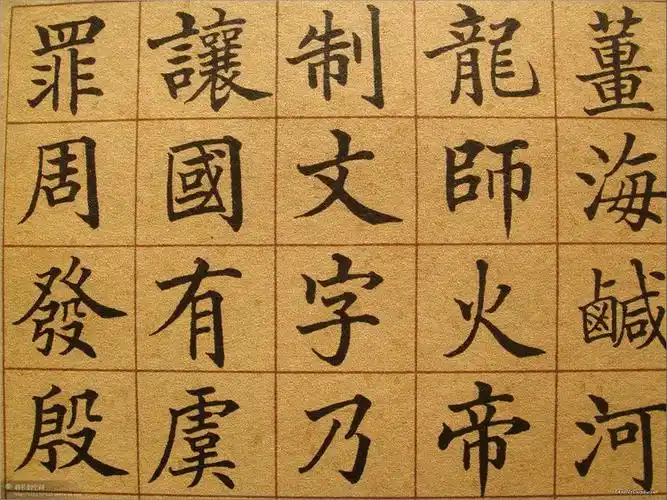 薑海鹹河
龍師火帝
制文字乃
讓國有虞
罪周發殷